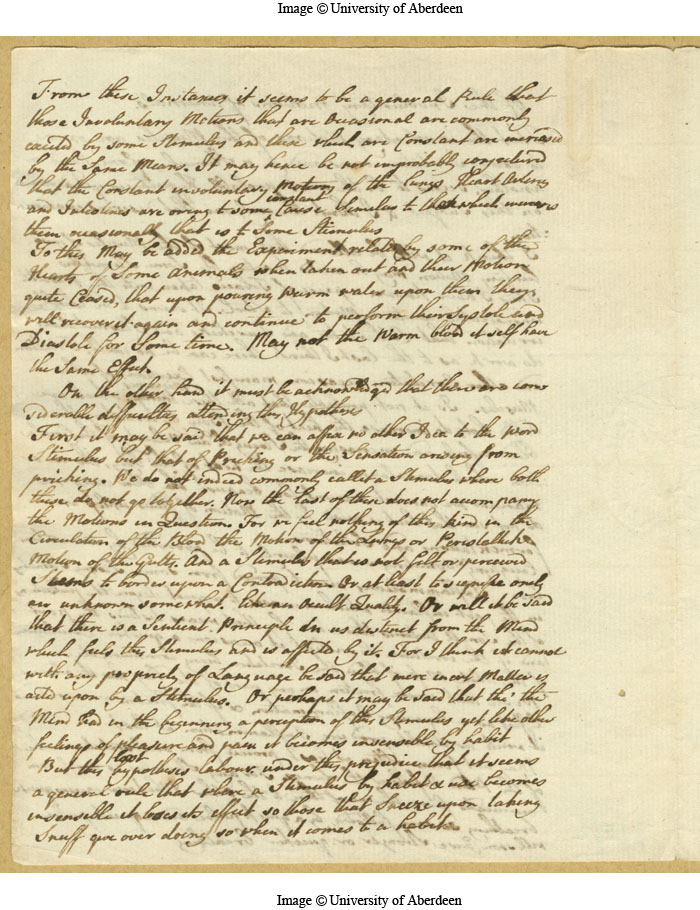 Image © University of Aberdeen
From these Instances it seems to be a general Rule that
those Involuntary Motions that are Occasional are commonly
excited by some Stimulus and these which are Constant are increased
by the Same Means. It may hence be not improbably conjectured
that the Constant involuntary Motions of the Lungs Heart Arteries
constant
and Intestines are owing to some Cause Similar to that which moves
them occasionally that is to Some Stimulus
To this May be added the Experiment related by some of the
Hearts of Some Animals when taken out and their Motion
quite Ceased, that upon pouring Warm water upon them they
will recover it again and continue to perform their Systole and
Diastole for Some time. May not the Warm blood it self have
the Same Effect.
On the other hand it must be acknowledged that there are con
siderable difficulties attending this Hypothese
First it may be said that we can affix no other Idea to the word
Stimulus but that of Pricking or the Sensation arising from
pricking. We do not indeed commonly call it a Stimulus where both
these do not go together. Now the last of these does not accompany
the Motions in Question. For we feel nothing of this kind in the
Circulation of the Blood the Motion of the Lungs or Peristaltick
Motion of the Gutts. And a Stimulus that is not felt or perceived
Seems to border upon a Contradiction Or at least to signifie only
an unknown somewhat like an Occult Quality. Or will it be said
that there is a Sentient Principle in us distinct from the Mind
which feels this Stimulus and is affected by it. For I think it cannot
with any propriety of Language be said that mere inert Matter is
acted upon by a Stimulus. Or perhaps it may be said that the
Mind had in the beginning a perception of this Stimulus yet like other
feelings of pleasure and pain it becomes insensible by habit
last
But this hypothesis labours under this prejudice that it seems
a general rule that where a Stimulus by habit & use becomes
insensible it loses its effect so those that Sneeze upon taking
Snuff give over doing so when it comes to a habit
Image © University of Aberdeen